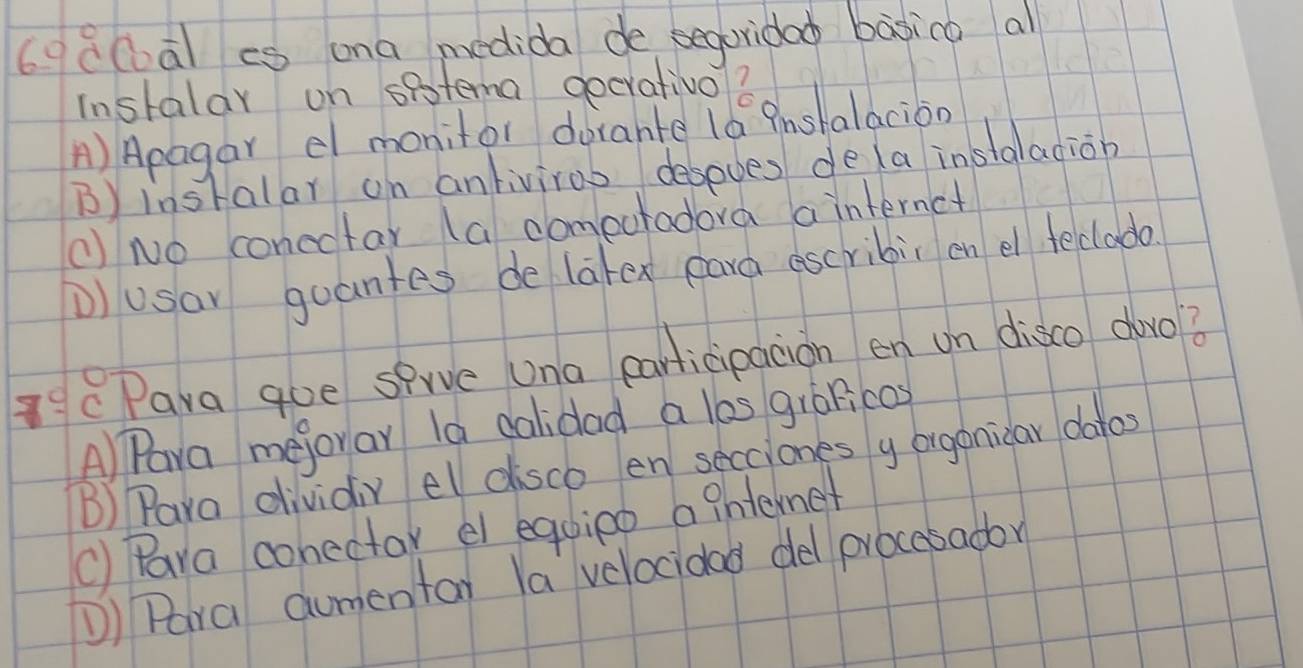 6º ¿Cuál es una medida de seguridad básica al
instalar un sistema operativo?
A) Apagar el monitor durante la instalación
B) Instalar un antivirus despues de la instalación
C) No conectar la computadora a internet
D) Usar guantes de látex para escribir en el teclado.
7º ¿Para que sirve una participación en un disco duro?
A) Para mejorar la calidad a los gráficos
B) Para dividir el disco en secciones y organizar datos
C) Para conectar el equipo a internet
D) Para aumentar la velocidad del procesador